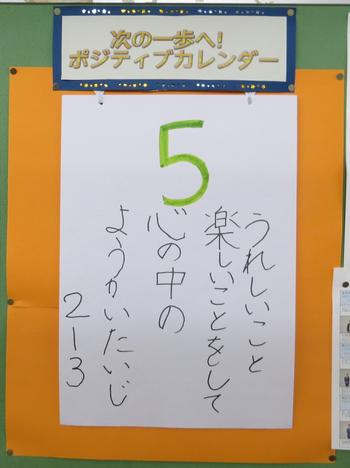 次の一歩へ!
ポジティブカレンダー
5
うれしいこと
楽しいことをして
心の中の
ようかいたいじ
2-3